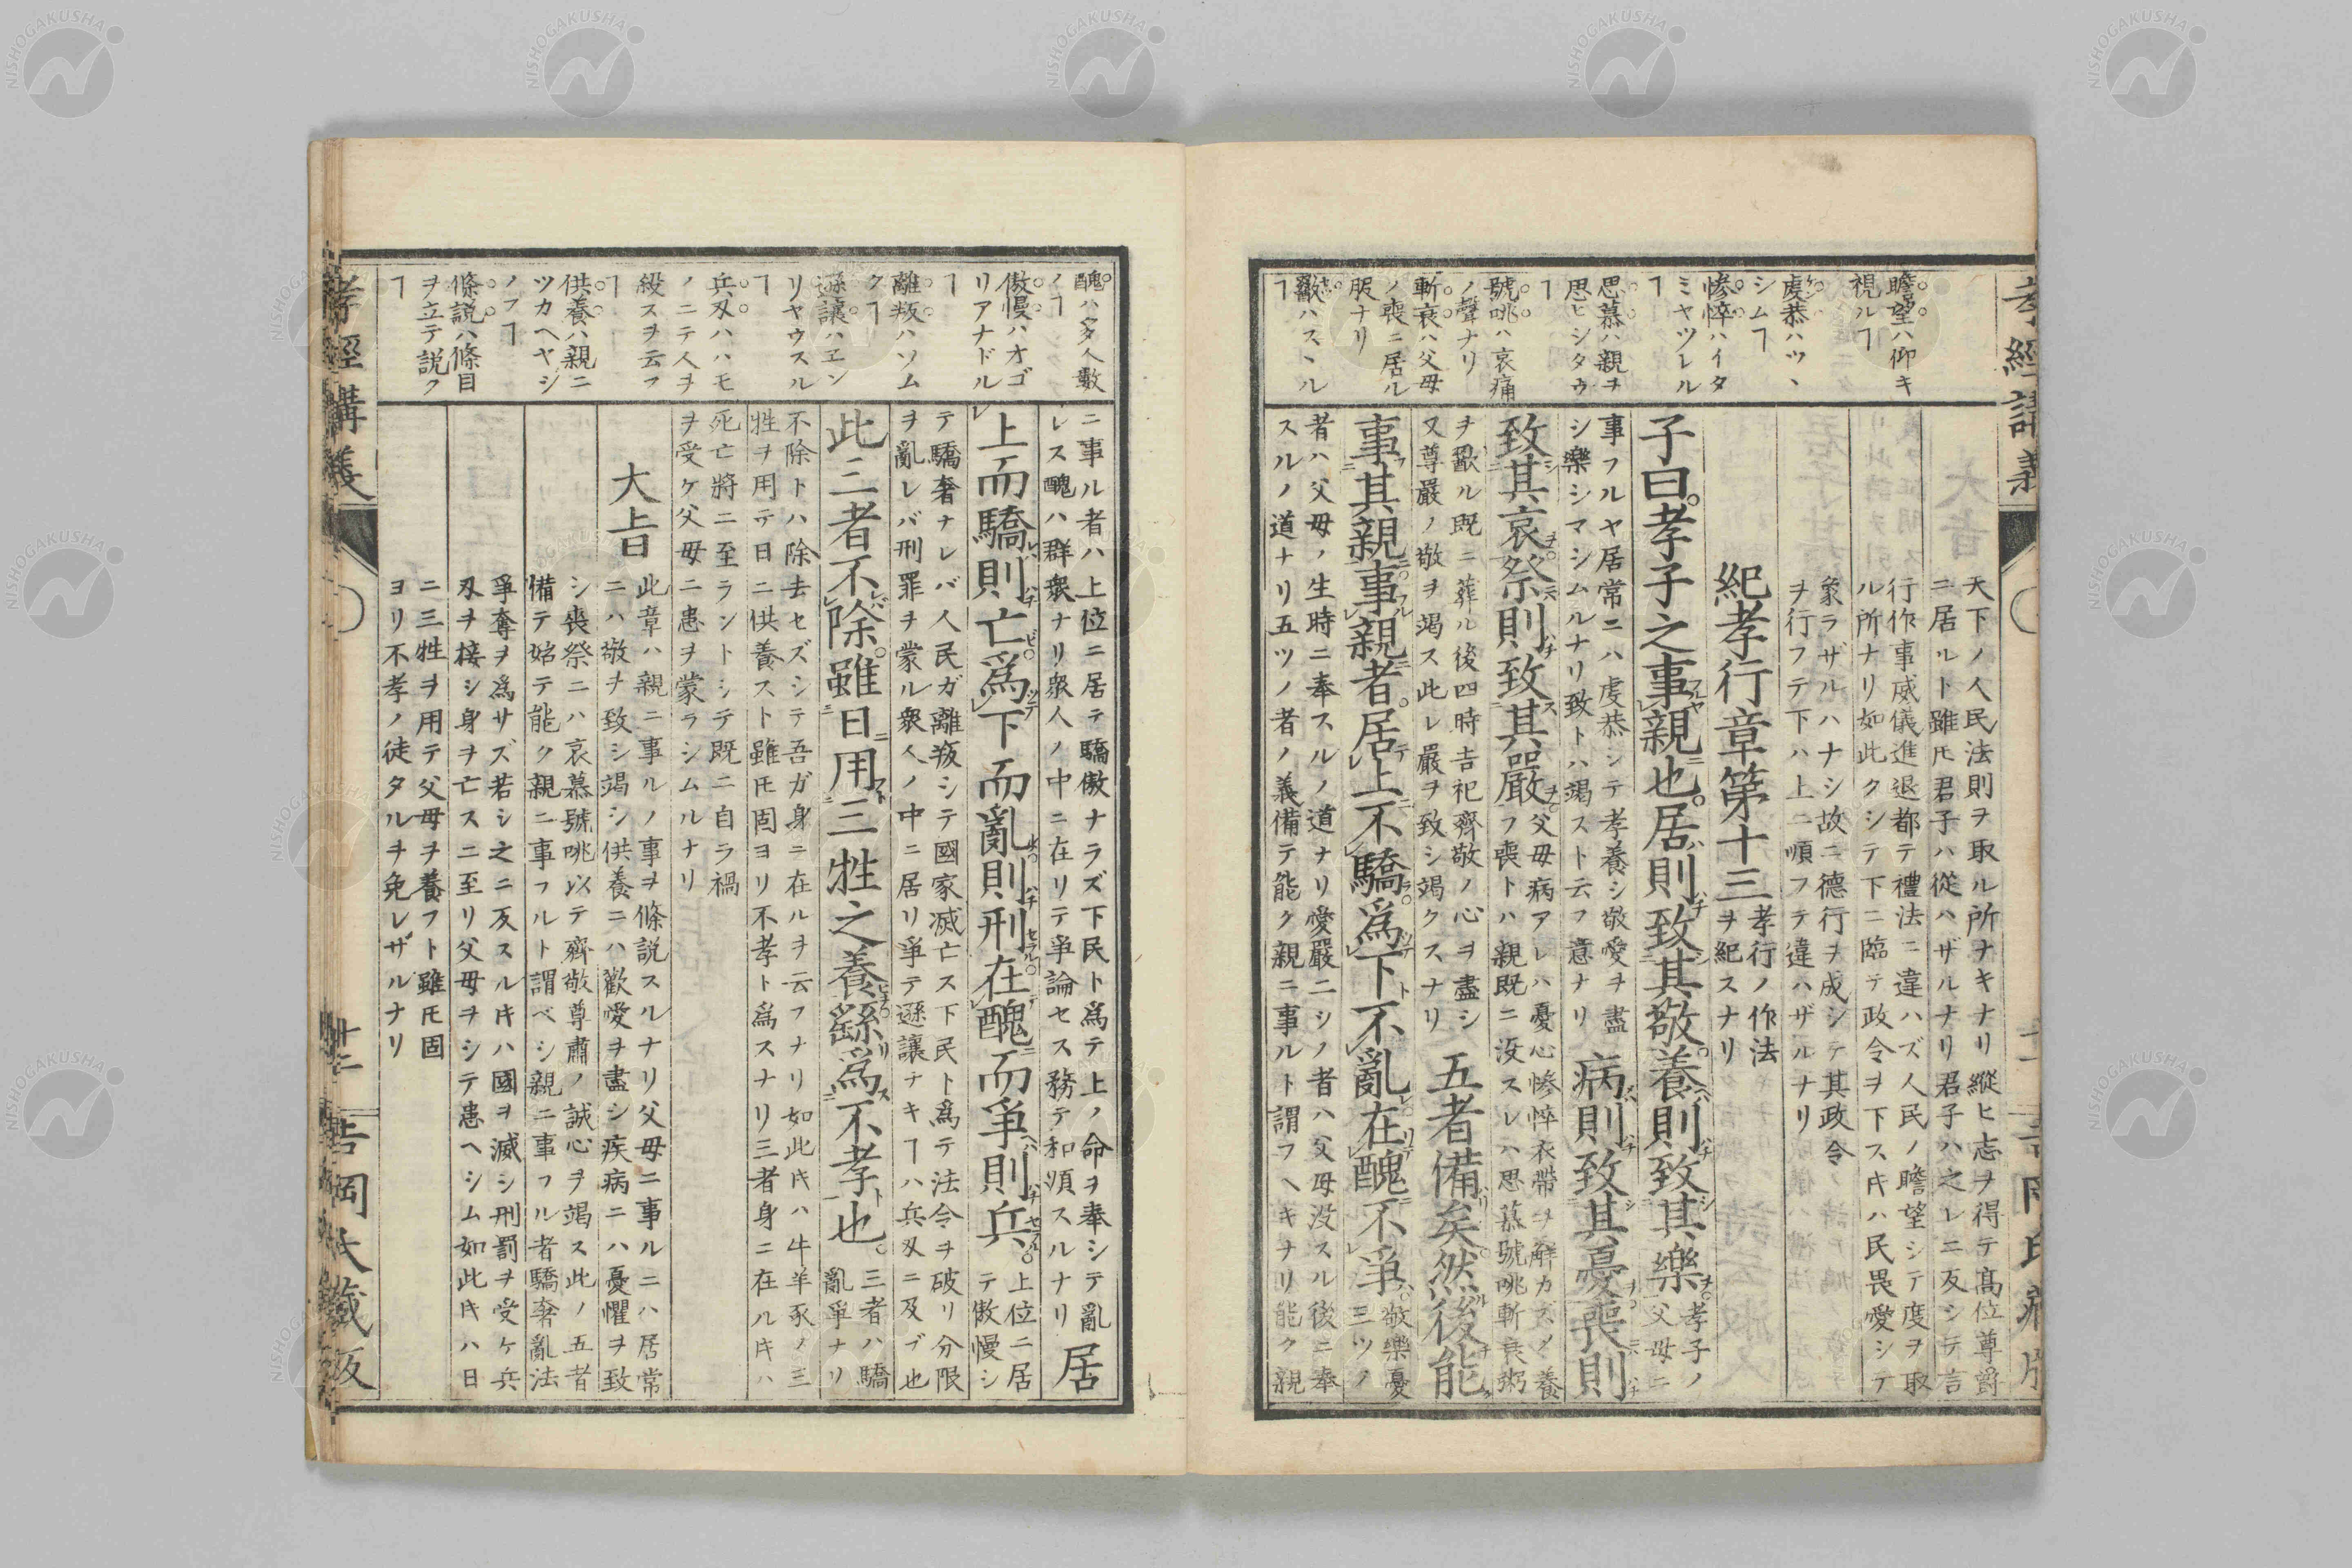 孝經講義
瞻望ハ仰キ
視ルヿ
虔恭ハツヽ
シムヿ
惨悴ハイタ
ミヤツレル
ヿ
思慕ハ親ヲ
思ヒシタウ
ヿ
號咷ハ哀痛
ノ聲ナリ
斬衰ハ父母
ノ喪ニ居ル
服ナリ
歠ハスヽル
ヿ
天下ノ人民法則ヲ取ル所ナキナリ縱ヒ志ヲ得テ髙位尊爵
ニ居ルト雖𪜈君子ハ從ハザルナリ君子ハ之レニ反シテ言
行作事威儀進退都テ禮法ニ違ハズ人民ノ瞻望シテ度ヲ取
ル所ナリ如此クシテ下ニ臨テ政令ヲ下ス𪜈ハ民畏愛シテ
象ラザルハナシ故ニ德行ヲ成シテ其政令
ヲ行フテ下ハ上ニ順フテ違ハザルナリ
紀孝行章第十三
孝行ノ作法
ヲ紀スナリ
子曰。孝子之事親也。居則致其敬。養則致其樂。
孝子ノ
父母ニ
事フルヤ居常ニハ虔恭シテ孝養シ敬愛ヲ盡
シ樂シマシムルナリ致トハ竭スト云フ意ナリ
病則致其憂。喪則
致其哀。祭則致其嚴。
父母病アレハ憂心惨悴衣帶ヲ解カズ養
フ喪トハ親既ニ沒スレハ思慕號咷斬衰粥
ヲ歠ル既ニ葬ル後四時吉祀齊敬ノ心ヲ盡シ
又尊嚴ノ敬ヲ竭ス此レ嚴ヲ致シ竭クスナリ
五者備矣。然後能
事其親。事親者。居上不驕。爲下不亂。在醜不爭。
敬樂憂
三ツノ
者ハ父母ノ生時ニ奉スルノ道ナリ愛嚴二ツノ者ハ父母没スル後ニ奉
スルノ道ナリ五ツノ者ノ義備テ能ク親ニ事ルト謂フヘキナリ能ク親
醜ハ多人數
ノヿ
傲慢ハオゴ
リアナドル
ヿ
離叛ハソム
クヿ
遜讓ハヱン
リヤウスル
ヿ
兵刄ハハモ
ノニテ人ヲ
殺スヲ云フ
ヿ
供養ハ親ニ
ツカヘヤシ
ノフヿ
條説ハ條目
ヲ立テ説ク
ヿ
ニ事ル者ハ上位ニ居テ驕傲ナラズ下民ト爲テ上ノ命ヲ奉シテ亂
レス醜ハ群衆ナリ衆人ノ中ニ在リテ爭論セス務テ和順スルナリ
居
上而驕則亡。爲下而亂則刑。在醜而爭則兵。
上位ニ居
テ傲慢シ
テ驕奢ナレバ人民ガ離叛シテ國家滅亡ス下民ト爲テ法令ヲ破リ分限
ヲ亂レバ刑罪ヲ蒙ル衆人ノ中ニ居リ爭テ遜讓ナキヿハ兵刄ニ及ブ也
此三者不除。雖日用三牲之養。繇爲不孝也。
三者ハ驕
亂爭ナリ
不除トハ除去セズシテ吾ガ身ニ在ルヲ云フナリ如此𪜈ハ牛羊豕ノ三
牲ヲ用テ日ニ供養スト雖𪜈固ヨリ不孝ト爲スナリ三者身ニ在ル𪜈ハ
死亡將ニ至ラントシテ既ニ自ラ禍
ヲ受ケ父母ニ患ヲ蒙ラシムルナリ
大㫖
此章ハ親ニ事ルノ事ヲ條説スルナリ父母ニ事ルニハ居常
ニハ敬ヲ致シ竭シ供養ニハ歡愛ヲ盡シ疾病ニハ憂懼ヲ致
シ喪祭ニハ哀慕號咷以テ齊敬尊肅ノ誠心ヲ竭ス此ノ五者
備テ始テ能ク親ニ事フルト謂ベシ親ニ事フル者驕奢亂法
爭奪ヲ爲サズ若シ之ニ反スル𪜈ハ國ヲ滅シ刑罰ヲ受ケ兵
刄ヲ接シ身ヲ亡スニ至リ父母ヲシテ患ヘシム如此𪜈ハ日
ニ三牲ヲ用テ父母ヲ養フト雖𪜈固
ヨリ不孝ノ徒タルヲ免レザルナリ
孝經講義
廿二
NISHOGAKUSHA